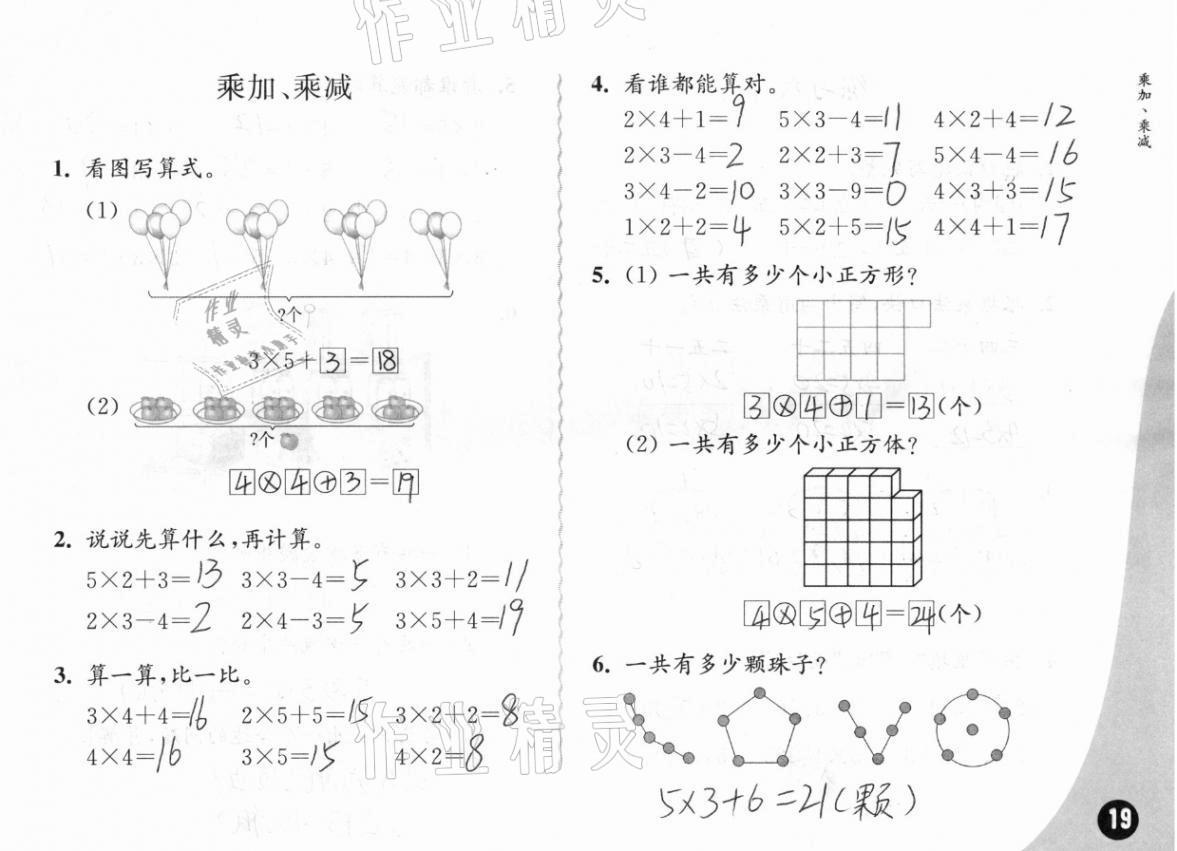 作业精灵
乘加、乘减
1. 看图写算式。
(1)
?个
作业
精灵
3×5+3=18
(2)
?个
4×4+3=19
2. 说说先算什么,再计算。
5×2+3=13 3×3-4=5 3×3+2=11
2×3-4=2 2×4-3=5 3×5+4=19
3. 算一算,比一比。
3×4+4=16 2×5+5=15 3×2+2=8
4×4=16 3×5=15 4×2=8
作业精灵
4. 看谁都能算对。
2×4+1=9 5×3-4=11 4×2+4=12
2×3-4=2 2×2+3=7 5×4-4=16
3×4-2=10 3×3-9=0 4×3+3=15
1×2+2=4 5×2+5=15 4×4+1=17
5. (1) 一共有多少个小正方形?
3×4+1=13(个)
(2) 一共有多少个小正方体?
4×5+4=24(个)
6. 一共有多少颗珠子?
5×3+6=21(颗)
乘加、乘减
19